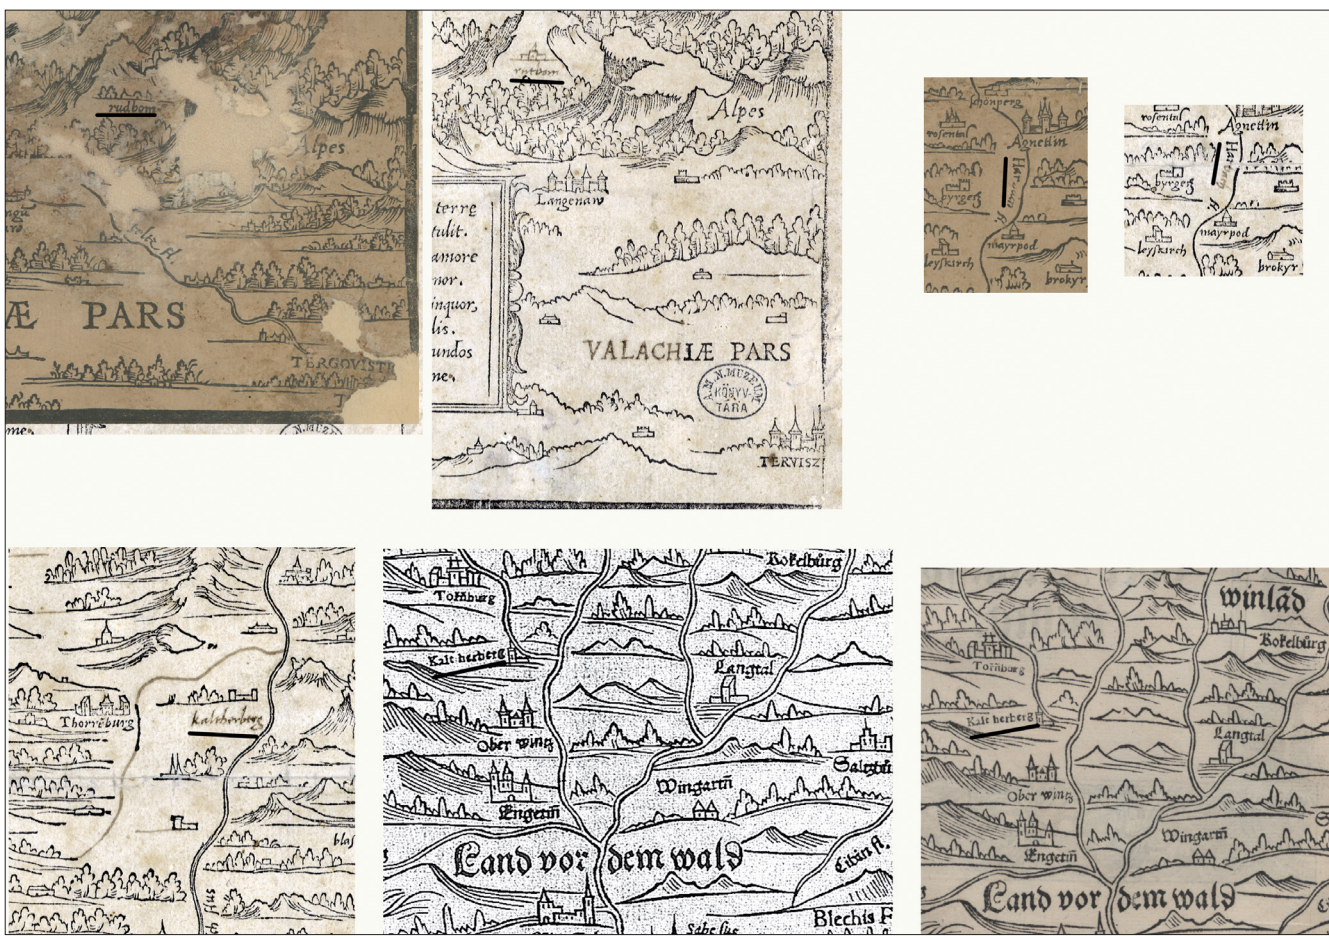 rudbom
Alpes
alt fl
Æ PARS
TERGOVISTR
me.
N.MUZE
Alpes
Langenaw
terre
tulit.
amore
nor.
inquor,
lis.
undos
ne,
VALACHIÆ PARS
M.N.MUZEUM
KÖNYV-
TÁRA
TERVISZ
schönperg
rosental
Agnetlin
mayrpod
leyskirch
brokyr
rosental
Agnetlin
byrgeß
mayrpod
leyskirch
brokyr
Thorrēburg
kaltherberg
blas
Kokelbürg
Torñburg
Kalt herberg
Langtal
Ober wintz
Wingartñ
Engetiñ
Land vor dem wald
Cibin fl.
Blechis F
Sabesus
winlād
Kokelbürg
Torñburg
Kalt herberg
Langtal
Ober wintz
Wingartñ
Engetiñ
Land vor dem wald